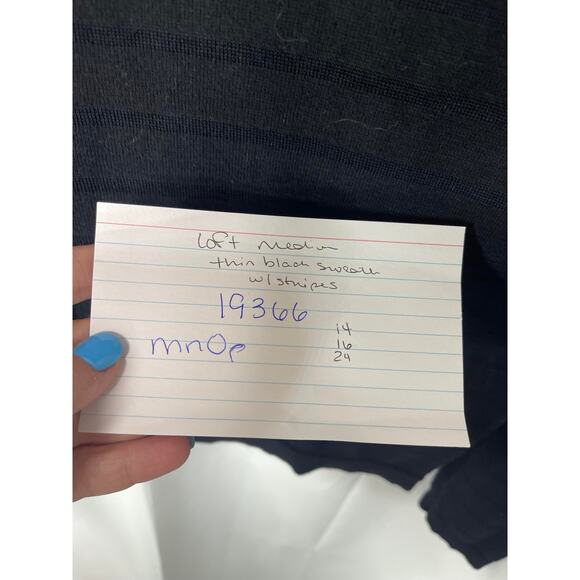 Loft Medium
thin black sweater
w/ stripes
19366
mnOp
14
16
24